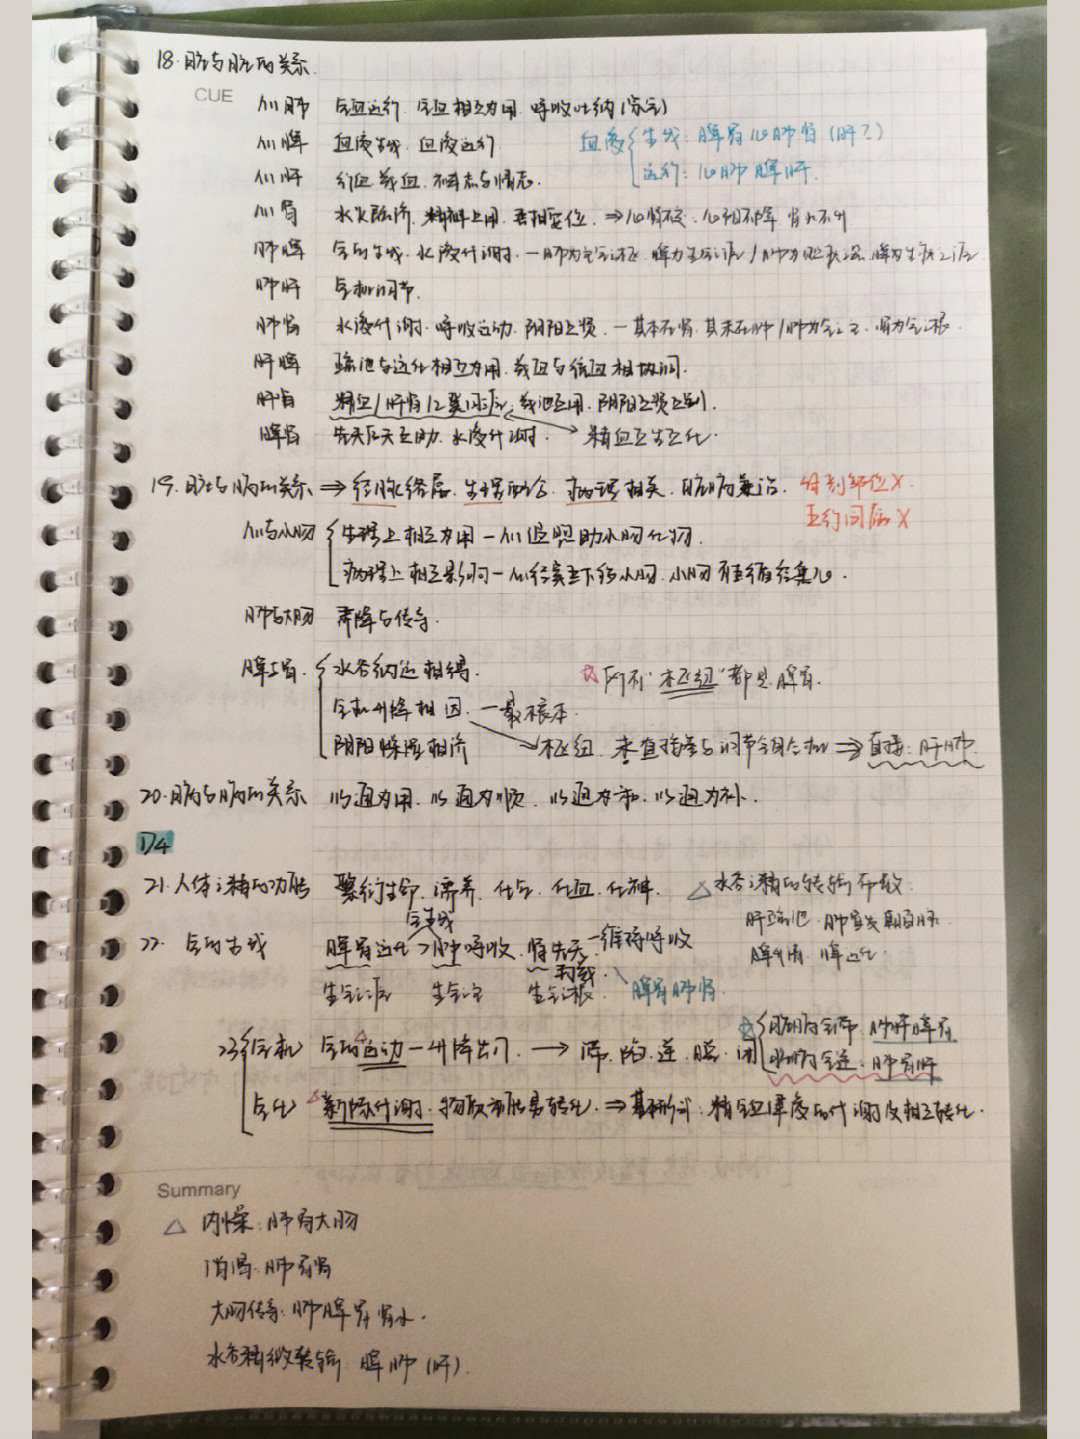 18. 脏与脏的关系.
CUE
心 肺 气血运行. 气血相互为用. 呼吸吐纳(宗气)
心 脾 血液生成. 血液运行
血液 生成: 脾胃心肺肾(肝?)
运行: 心肺脾肝.
心 肝 行血藏血. 神志与情志.
心 肾 水火既济. 精神互用. 君相安位. ⇒心肾不交. 心阳不降 肾水不升
肺脾 气的生成. 水液代谢. — 肺为主气之枢. 脾为生气之源 / 肺为贮痰之器. 脾为生痰之源
肺肝 气机调节.
肺肾 水液代谢. 呼吸运动. 阴阳互资. — 其本在肾. 其末在肺 / 肺为气之主. 肾为气之根.
肝脾 疏泄与运化相互为用. 藏血与统血相协调.
肝肾 精血/肝肾/乙癸同源. 藏泄互用. 阴阳互资互制.
脾肾 先天后天互助. 水液代谢. 精血互生互化.
19. 脏与腑的关系 ⇒ 经脉络属. 生理配合. 病理相关. 脏病兼治. 特别部位X
互行同病X
心与小肠 生理上相互为用 — 心阳温煦助小肠化物.
病理上相互影响 — 心经实热下移小肠. 小肠有热循经熏心.
肺与大肠 肃降与传导.
脾与胃. 水谷纳运相得.
☆所有"枢纽"都是脾胃.
气机升降相因. — 最根本.
阴阳燥湿相济 枢纽. 来直接参与调节全身气机 ⇒ 直接: 肝肺
20. 腑与腑的关系 以通为用. 以通为顺. 以通为和. 以通为补.
D4
21. 人体之精的功能 繁衍生命. 濡养. 化气. 化血. 化神. △水谷之精的转输布散
肝疏泄. 肺宣发朝百脉
气生成
22. 气的生成 脾胃运化 > 肺呼吸 肾先天 — 维持呼吸
脾升清. 脾运化.
封藏.
生气之源 生气之主 生气之根. 脾胃肺肾
23 气机 气的运动 — 升降出入. → 滞. 陷. 逆. 脱. 闭 脏腑为气滞. 肺肝脾胃
为气逆. 肺胃肝
气化 △新陈代谢. 物质和能量转化. ⇒ 基本形式: 精气血津液的代谢及相互转化.
Summary
△ 内燥: 肺胃大肠
消渴: 肺胃肾
大肠传导: 肺脾胃肾小.
水谷精微转输: 脾肺(肝).